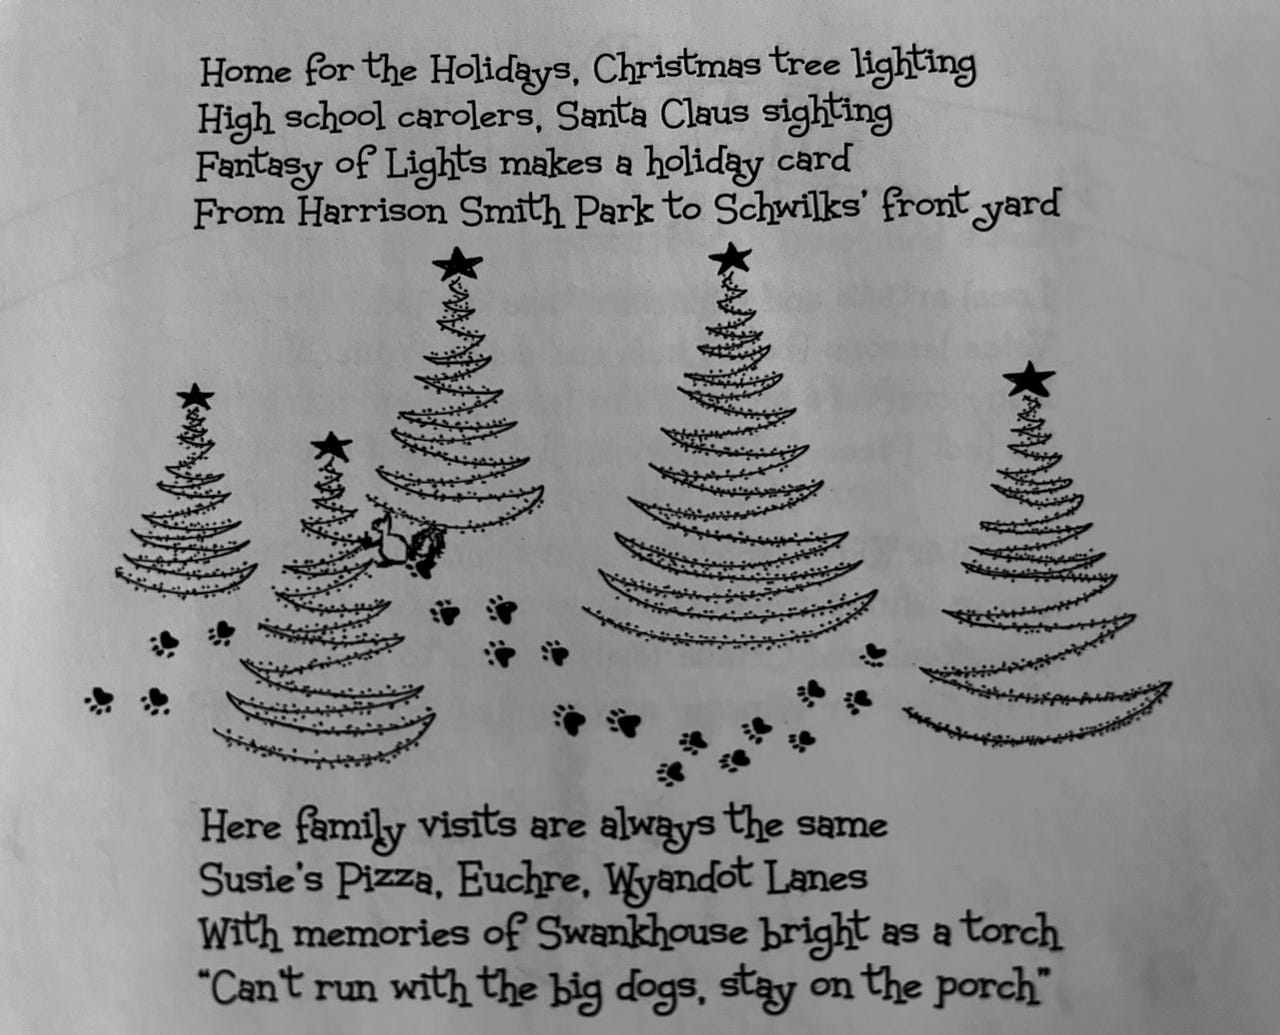 Home for the Holidays, Christmas tree lighting
High school carolers, Santa Claus sighting
Fantasy of Lights makes a holiday card
From Harrison Smith Park to Schwilks' front yard
Here family visits are always the same
Susie's Pizza, Euchre, Wyandot Lanes
With memories of Swankhouse bright as a torch
"Can't run with the big dogs, stay on the porch"